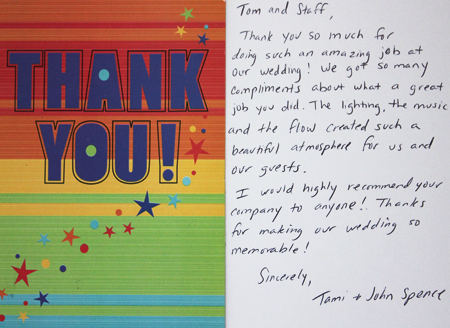 THANK
YOU!
Tom and Staff,
Thank you so much for
doing such an amazing job at
our wedding! We got so many
compliments about what a great
job you did. The lighting, the music
and the flow created such a
beautiful atmosphere for us and
our guests.
I would highly recommend your
company to anyone!! Thanks
for making our wedding so
memorable!
Sincerely,
Tami + John Spence